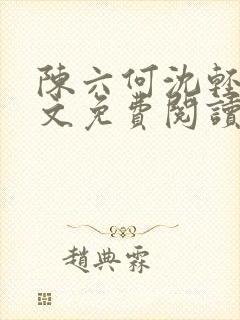 陳六何沈輕
文免費閱讀
趙典霖